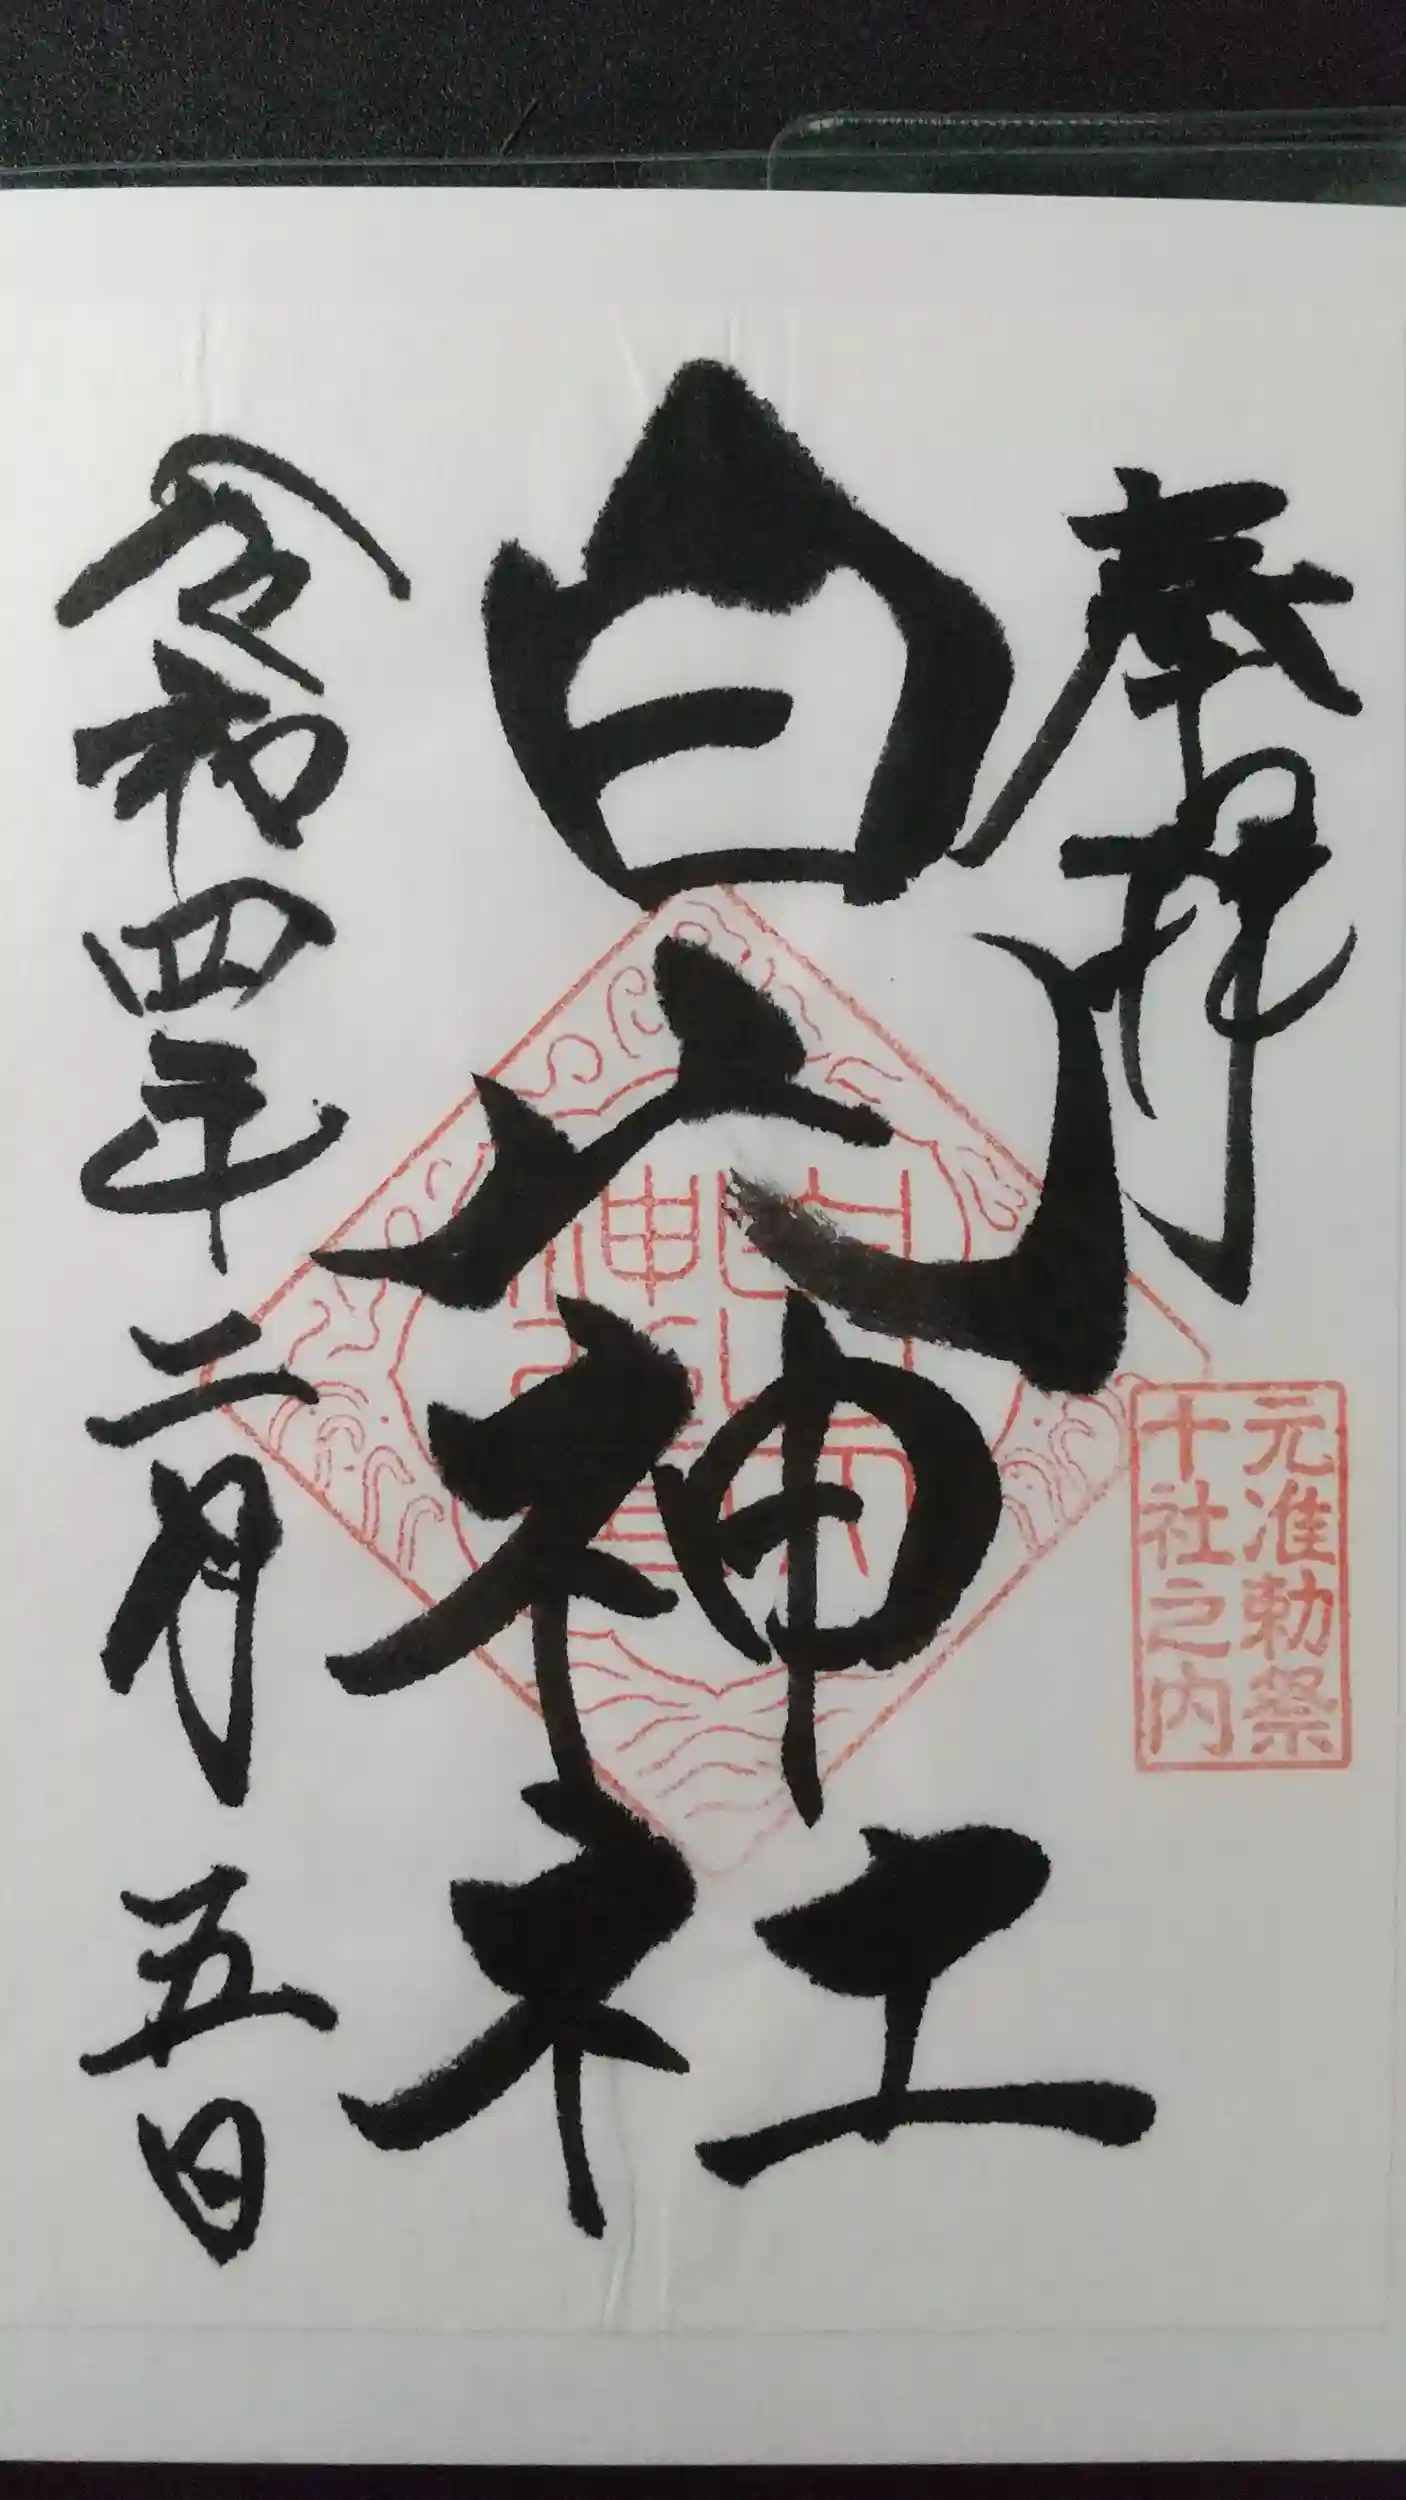 奉拝
元准勅祭
十社之内
白山神社
令和四年二月五日